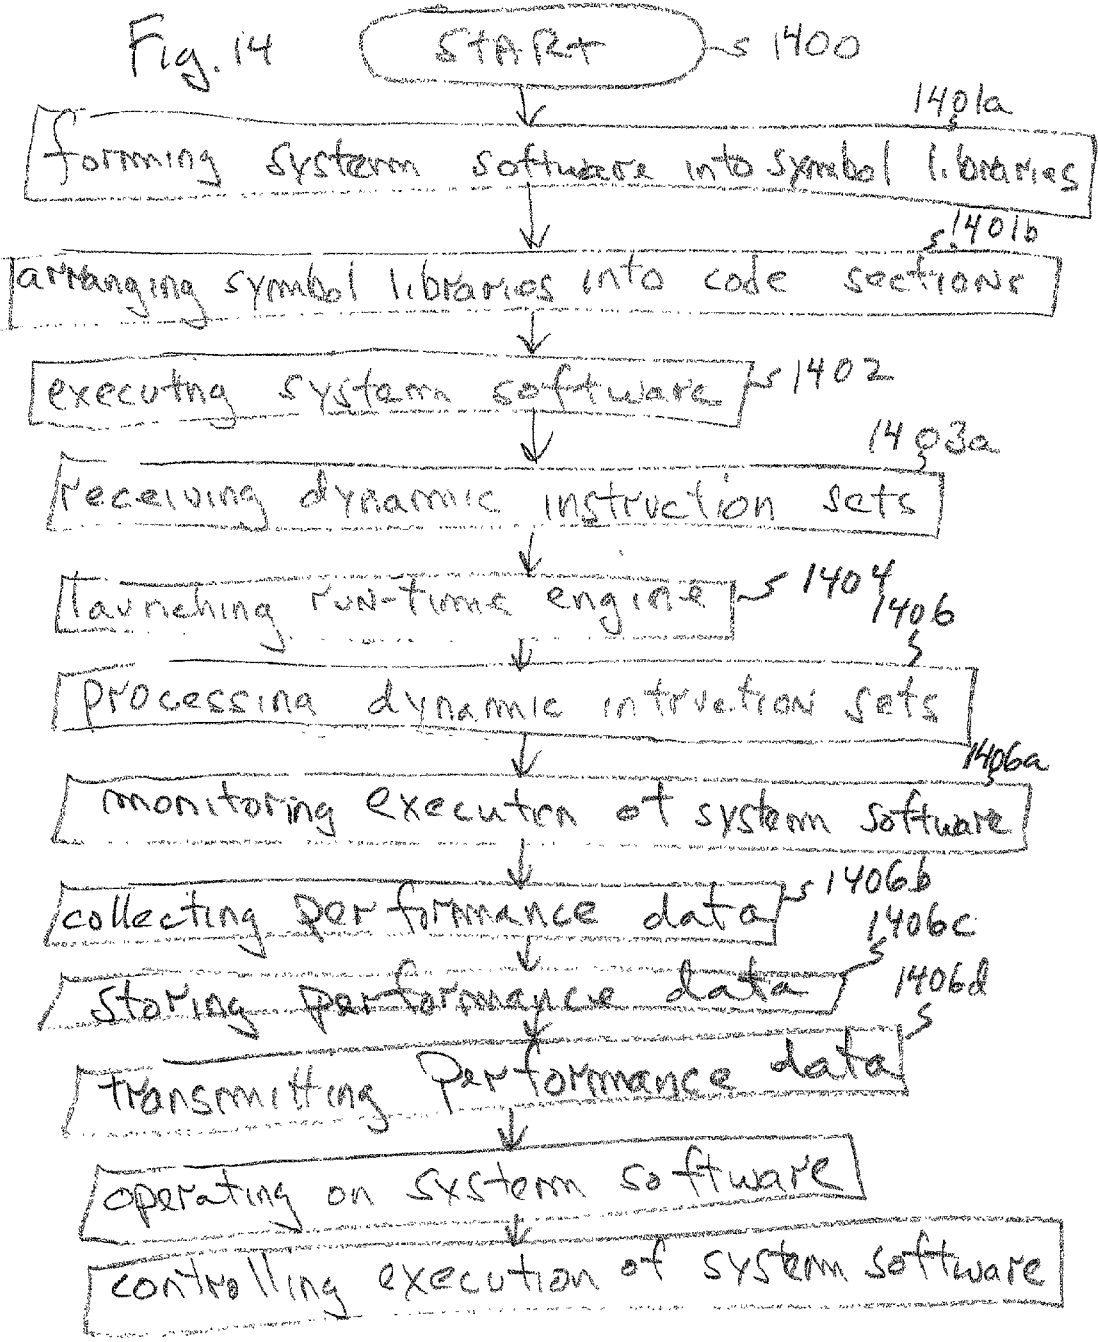 Fig. 14
START 1400
1401a
forming system software into symbol libraries
1401b
arranging symbol libraries into code sections
executng system software 1402
1403a
receiving dynamic instruction sets
launching run-time engine 1404
1406
processing dynamic intruction sets
1406a
monitoring executin of system software
collecting performance data 1406b
1406c
storing performance data
1406d
transmitting performance data
operating on system software
controlling execution of system software